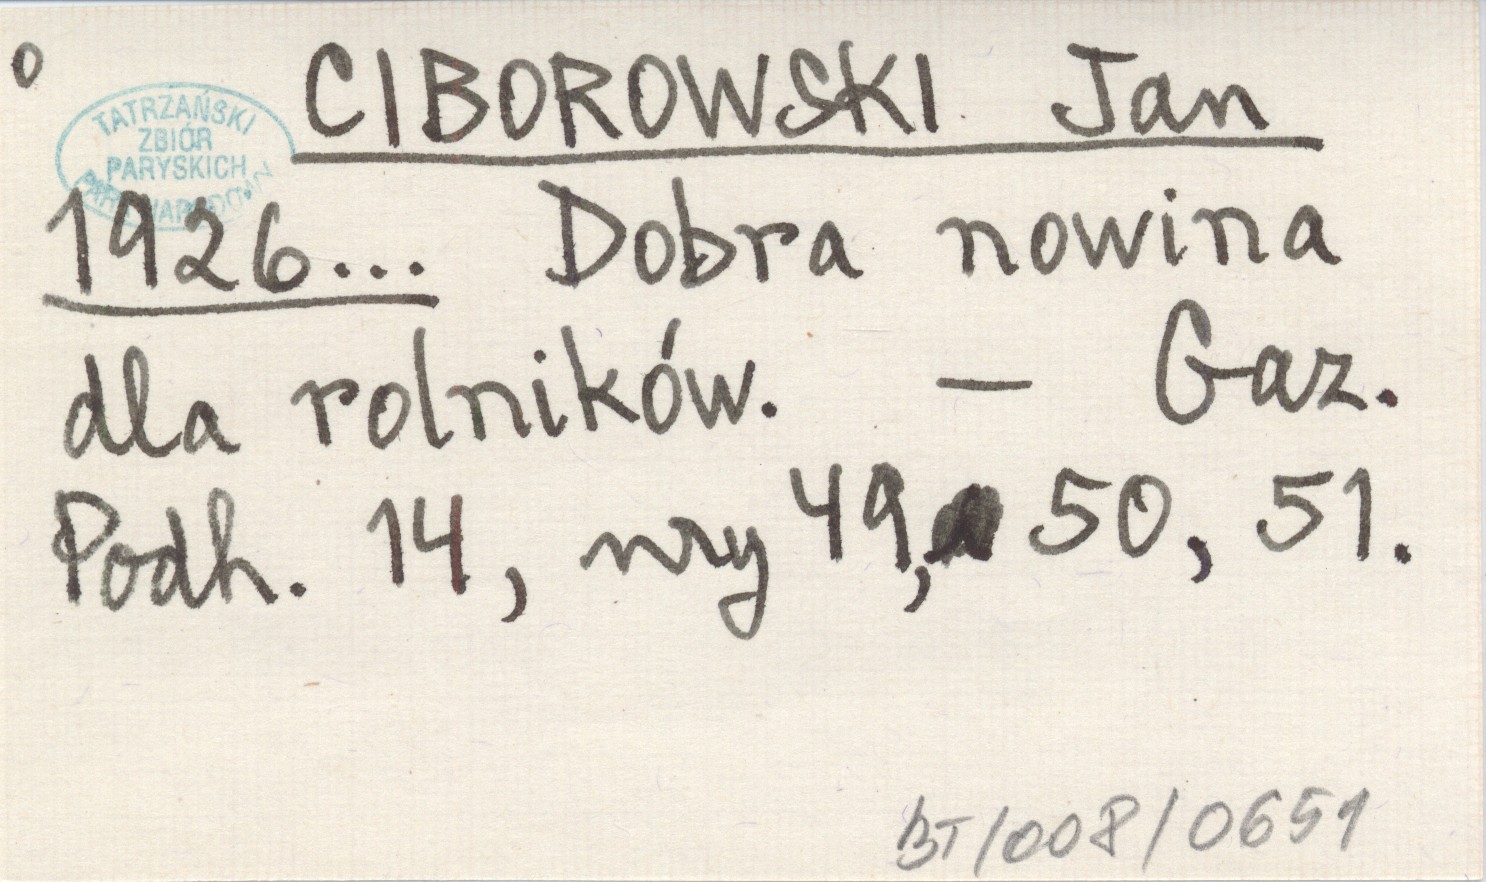 o
CIBOROWSKI Jan
TATRZAŃSKI
ZBIÓR
PARYSKICH
PARK NARODOWY
1926... Dobra nowina
dla rolników. — Gaz.
Podh. 14, nry 49, 50, 51.
BT/008/0651